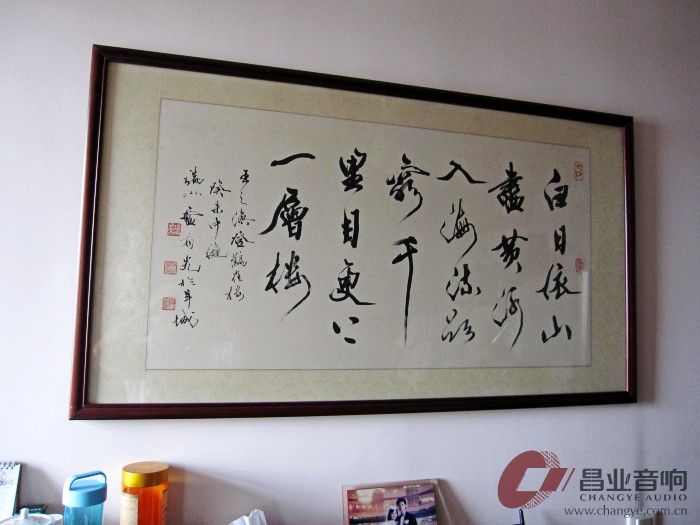 白日依山
盡黄河
入海流欲
窮千
里目更上
一層楼
王之渙登鸛雀楼
癸未中
於羊城
昌业音响
CHANGYE AUDIO
www.changye.com.cn